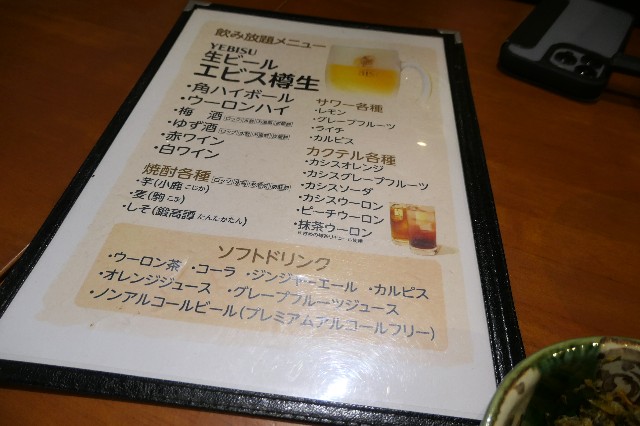 飲み放題メニュー
YEBISU
生ビール
エビス樽生
・角ハイボール
・ウーロンハイ
・梅 酒
・ゆず酒
・赤ワイン
・白ワイン
焼酎各種
・芋(小鹿 こじか)
・麦(駒 こま)
・しそ(鍛高譚 たんたかたん)
サワー各種
・レモン
・グレープフルーツ
・ライチ
・カルピス
カクテル各種
・カシスオレンジ
・カシスグレープフルーツ
・カシスソーダ
・カシスウーロン
・ピーチウーロン
・抹茶ウーロン
ソフトドリンク
・ウーロン茶 ・コーラ ・ジンジャーエール ・カルピス
・オレンジジュース ・グレープフルーツジュース
・ノンアルコールビール(プレミアムアルコールフリー)